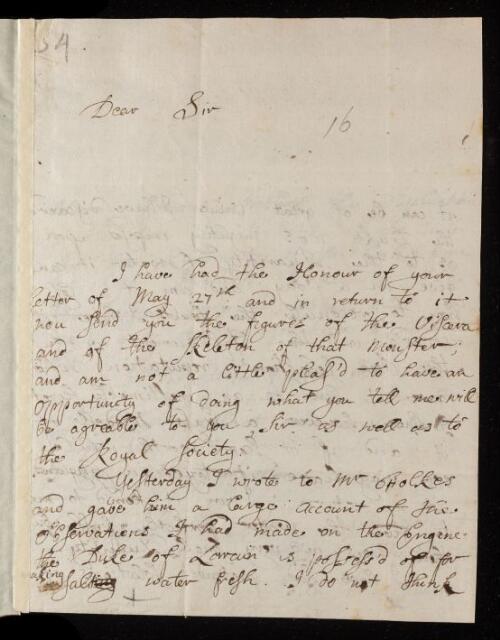 54
Dear Sir
16
I have had the Honour of your
letter of May 27th and in return to it
now send you the figures of the Viscera
and of the Skeleton of that Monster;
and am not a little pleas'd to have an
opportunity of doing what you tell me will
be agreable to you, Sir as well as to
the Royal Society.
Yesterday I wrote to Mr ffolkes
and gave him a large account of the
observations I had made on the Engine
the Duke of Lorrain is possess'd of for
making salt water fresh. I do not think